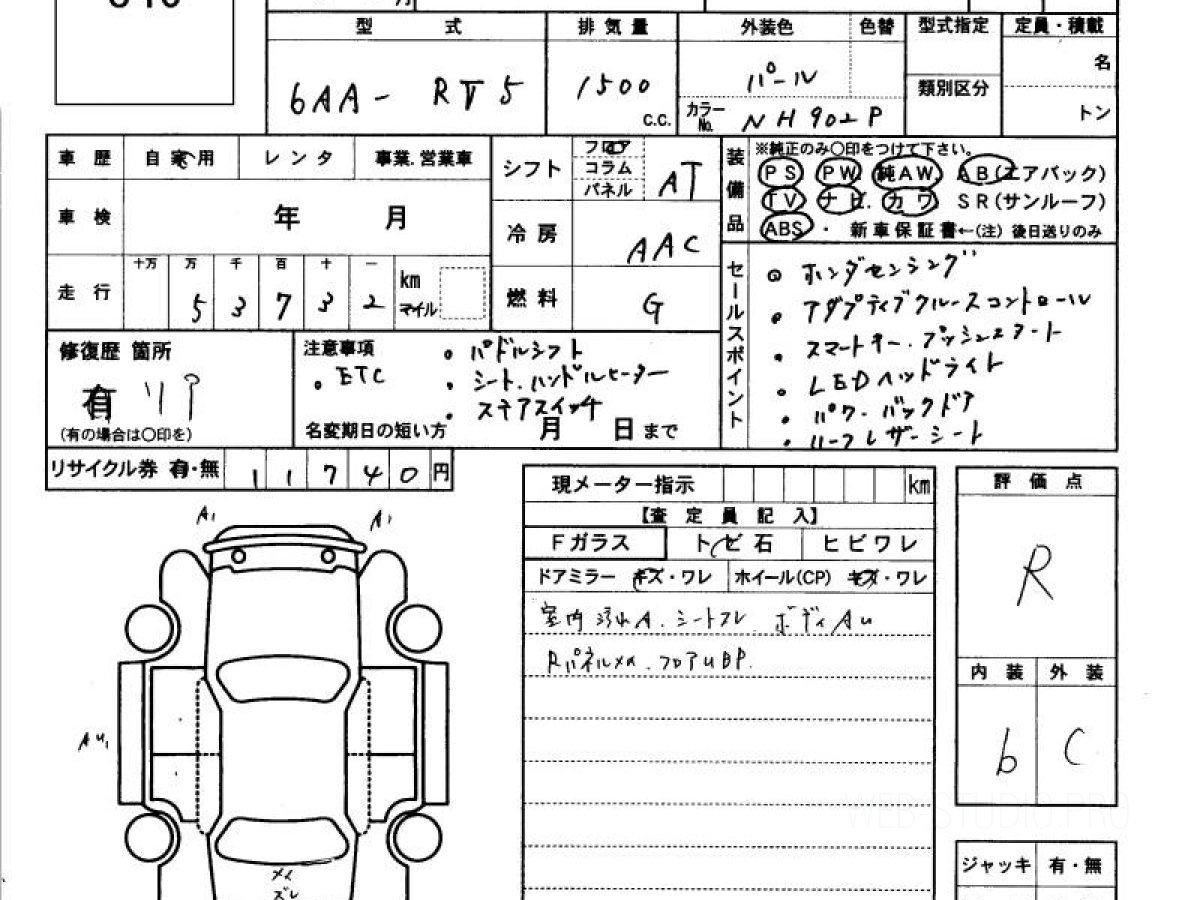 型 式
排 気 量
外装色
色替
型式指定
定員・積載
6AA- RV5
1500
c.c.
パール
名
類別区分
カラーNo.
NH902P
トン
車 歴
自 家 用
レ ン タ
事業.営業車
シフト
フロア
コラム
パネル
AT
装備品
※純正のみ〇印をつけて下さい。
PS PW 純AW AB(エアバック)
TV ナビ. カワ SR(サンルーフ)
ABS ・ 新車保証書←(注) 後日送りのみ
車 検
年 月
冷 房
AAC
走 行
十万 万 千 百 十 一
5 3 7 3 2
km
マイル
燃 料
G
セールスポイント
ホンダセンシング
アダプティブクルースコントロール
スマートキー.プッシュスタート
LEDヘッドライト
パワ.バックドア
ハーフレザーシート
修復歴 箇所
有 リア
(有の場合は〇印を)
注意事項
・ETC
・パドルシフト
・シート.ハンドルヒーター
・ステアスイッチ
名変期日の短い方 月 日 まで
リサイクル券 有・無 11740円
現メーター指示 km
【査 定 員 記 入】
Fガラス
トビ石
ヒビワレ
ドアミラー キズ・ワレ
ホイール(CP) キズ・ワレ
室内汚れA.シートスレ ボディAU
Rパネルメイ.フロアUBP.
評 価 点
R
内 装
外 装
b
C
A1
A1
AU1
メイ
ズレ
ジャッキ
有・無
WEB-STUDIO.PRO